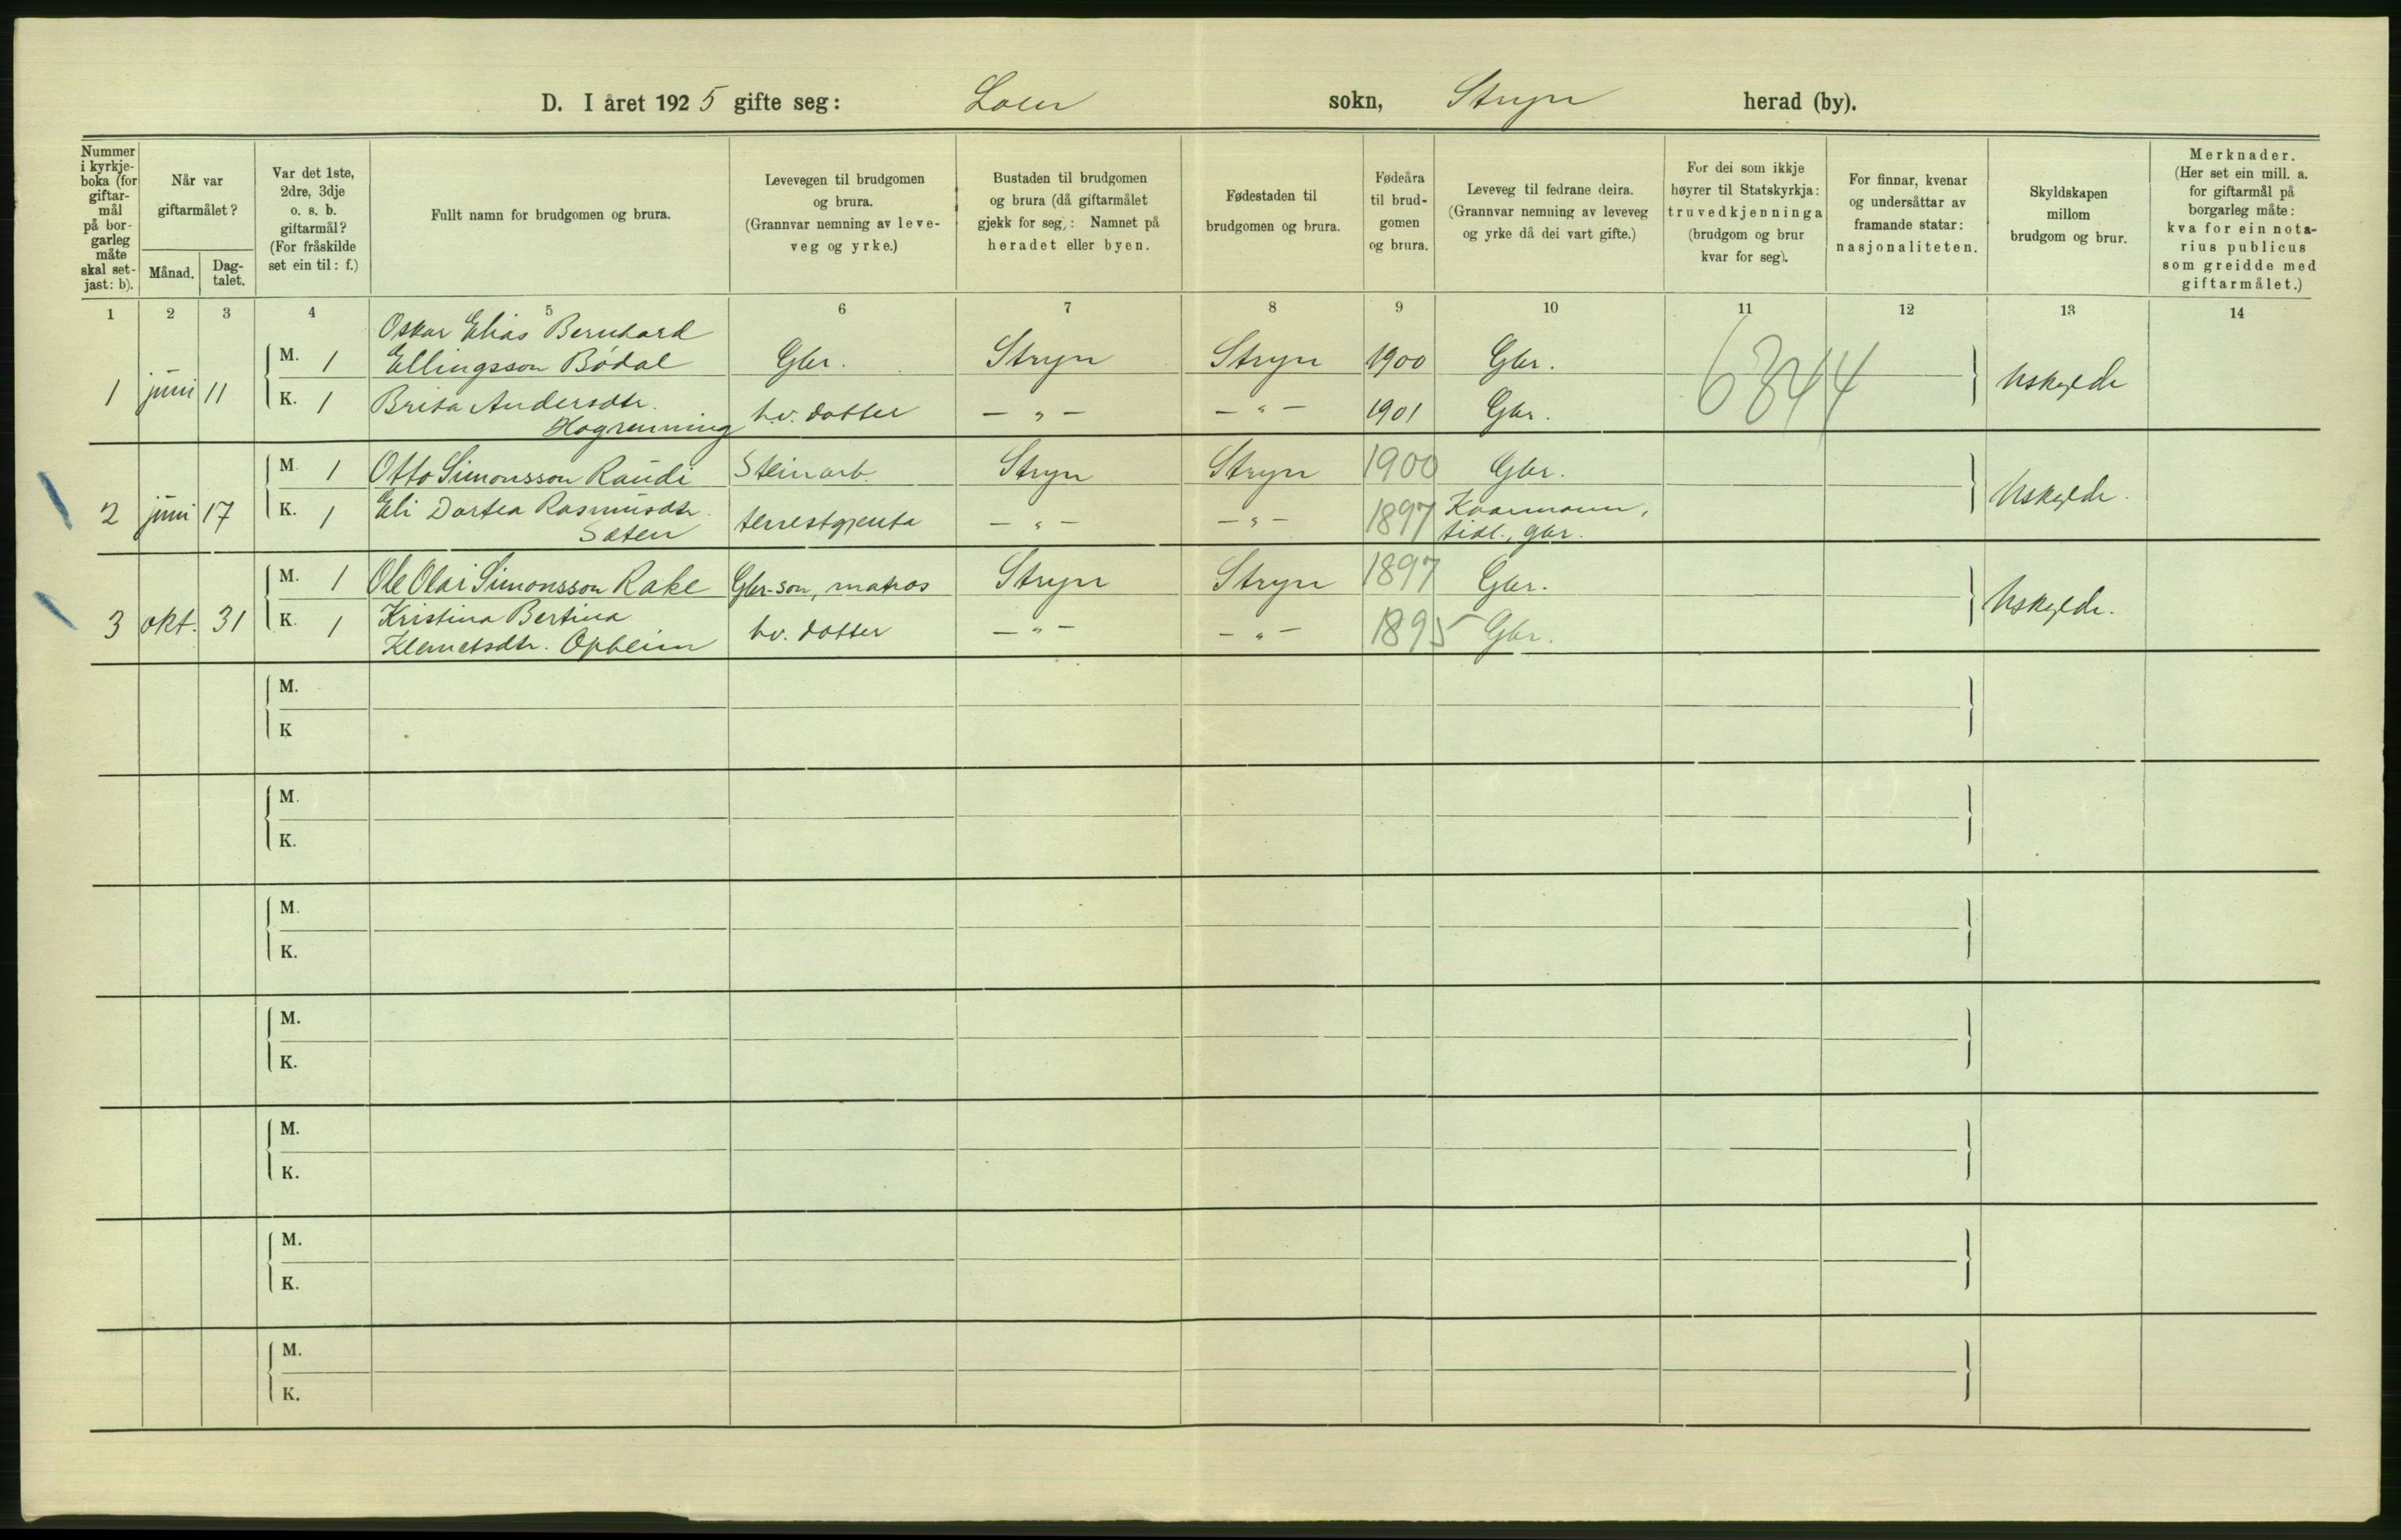 D. I året 1925 gifte seg: Loen sokn, Stryn herad (by).
Nummer i kyrkje-boka (for giftar-mål på bor-garleg måte skal set-jast: b).
Når var giftarmålet?
Månad.
Dag-talet.
Var det 1ste, 2dre, 3dje o. s. b. giftarmål? (For fråskilde set ein til: f.)
Fullt namn for brudgomen og brura.
Levevegen til brudgomen og brura. (Grannvar nemning av leve-veg og yrke.)
Bustaden til brudgomen og brura (då giftarmålet gjekk for seg): Namnet på heradet eller byen.
Fødestaden til brudgomen og brura.
Fødeåra til brud-gomen og brura.
Leveveg til fedrane deira. (Grannvar nemning av leveveg og yrke då dei vart gifte.)
For dei som ikkje høyrer til Statskyrkja: truvedkjenninga (brudgom og brur kvar for seg).
For finnar, kvenar og undersåttar av framande statar: nasjonaliteten.
Skyldskapen millom brudgom og brur.
Merknader. (Her set ein mill. a. for giftarmål på borgarleg måte: kva for ein nota-rius publicus som greidde med giftarmålet.)
1 2 3 4 5 6 7 8 9 10 11 12 13 14
Oskar Elias Bernhard
1 juni 11 M. 1 Ellingsson Bødal Gbr. Stryn Stryn 1900 Gbr. 6344 Uskylde
K. 1 Brita Andersdtr. Hogrenning hv. dotter — " — — " — 1901 Gbr.
2 juni 17 M. 1 Otto Simonsson Raudi Steinarb. Stryn Stryn 1900 Gbr. Uskylde.
K. 1 Eli Dortea Rasmusdtr. Sæten tenestgjenta — " — — " — 1897 Kaarmann,
tidl., gbr.
3 okt. 31 M. 1 Ole Olai Simonsson Rake Gbr-son, matros Stryn Stryn 1897 Gbr. Uskylde.
K. 1 Kristina Bertina
Klemetsdtr. Opheim hv. dotter — " — — " — 1895 Gbr.
M.
K
M.
K.
M.
K.
M.
K.
M.
K.
M.
K.
M.
K.